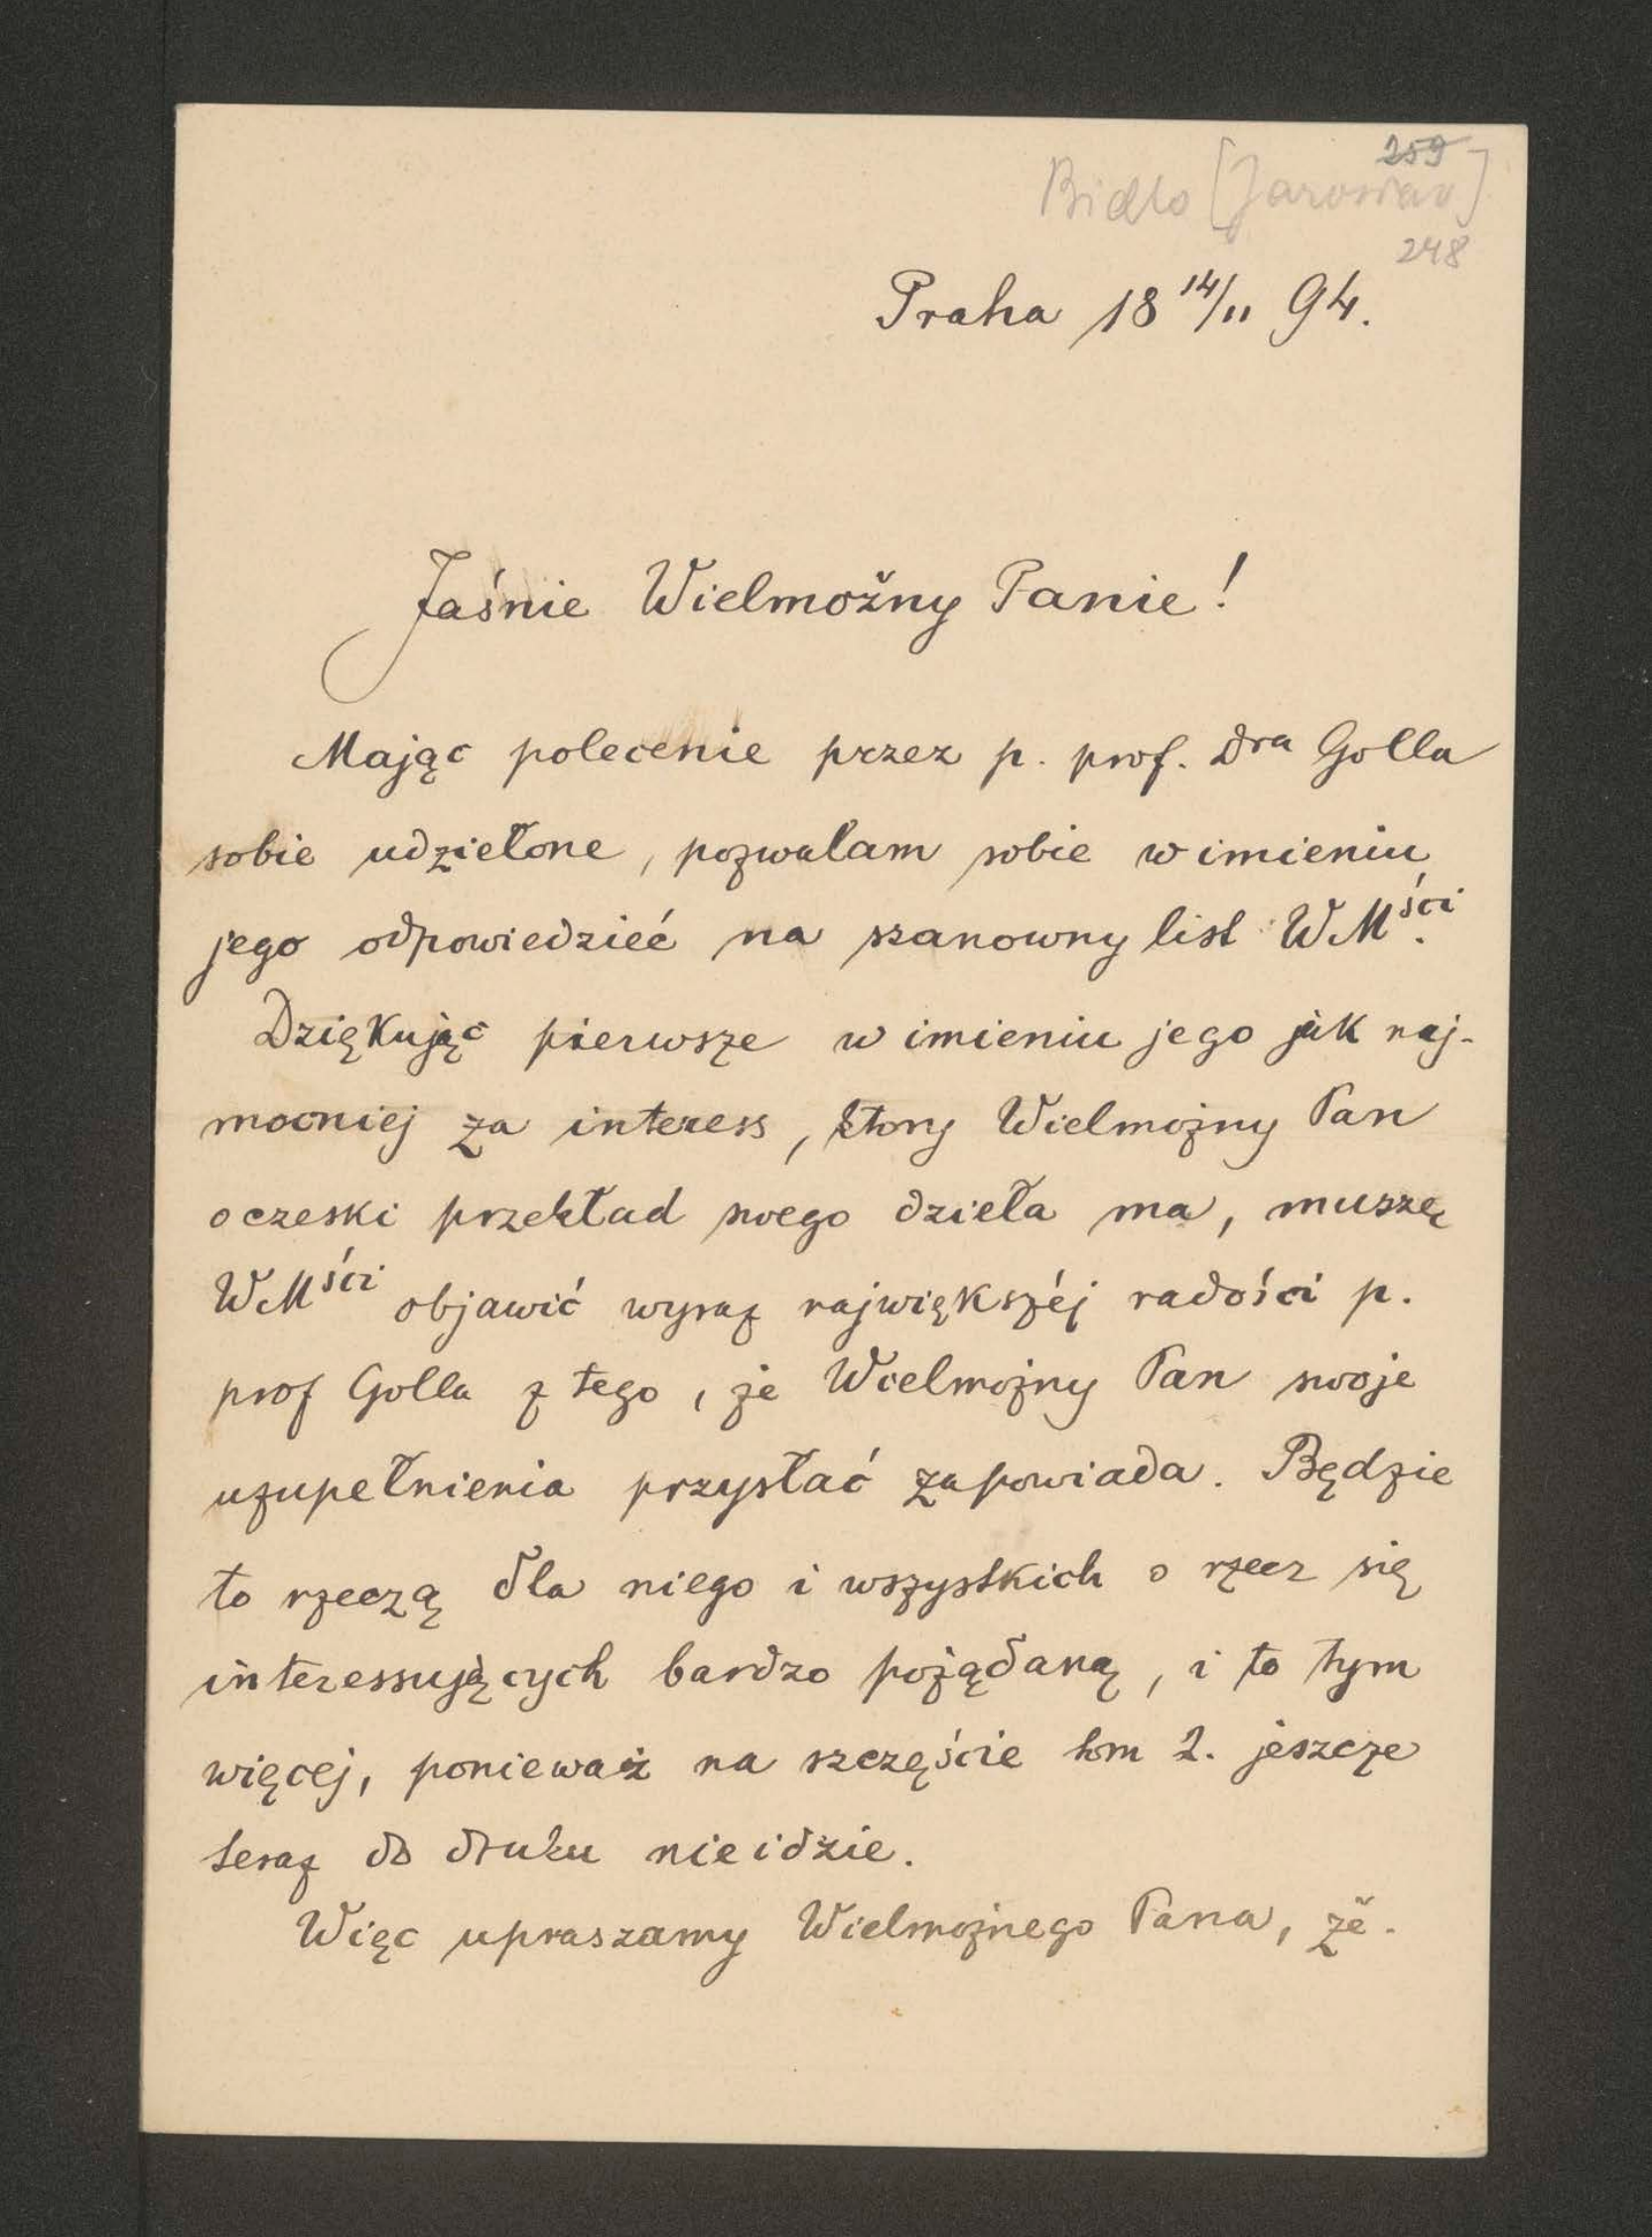 259
Bidlo [Jaroslav]
248
Praha 18 14/11 94.
Jaśnie Wielmožny Panie!
Mając polecenie przez p. prof. Dra Golla
sobie udziełone, pozwalam sobie w imieniu
jego odpowiedzieć na szanowny list WMści.
Dziękując pierwsze w imieniu jego jak naj-
mocniej za interess, ktory Wielmożny Pan
o czeski przekład swego dzieła ma, muszę
WMści objawić wyraz największéj radości p.
prof Golla z tego, że Wielmożny Pan swoje
uzupełnienia przysłać zapowiada. Będzie
to rzeczą dla niego i wszystkich o rzecz się
interessujących bardzo pożądaną, i to tym
więcej, ponieważ na szczęście tom 2. jeszcze
teraz do druku nie idzie.
Więc upraszamy Wielmożnego Pana, że-